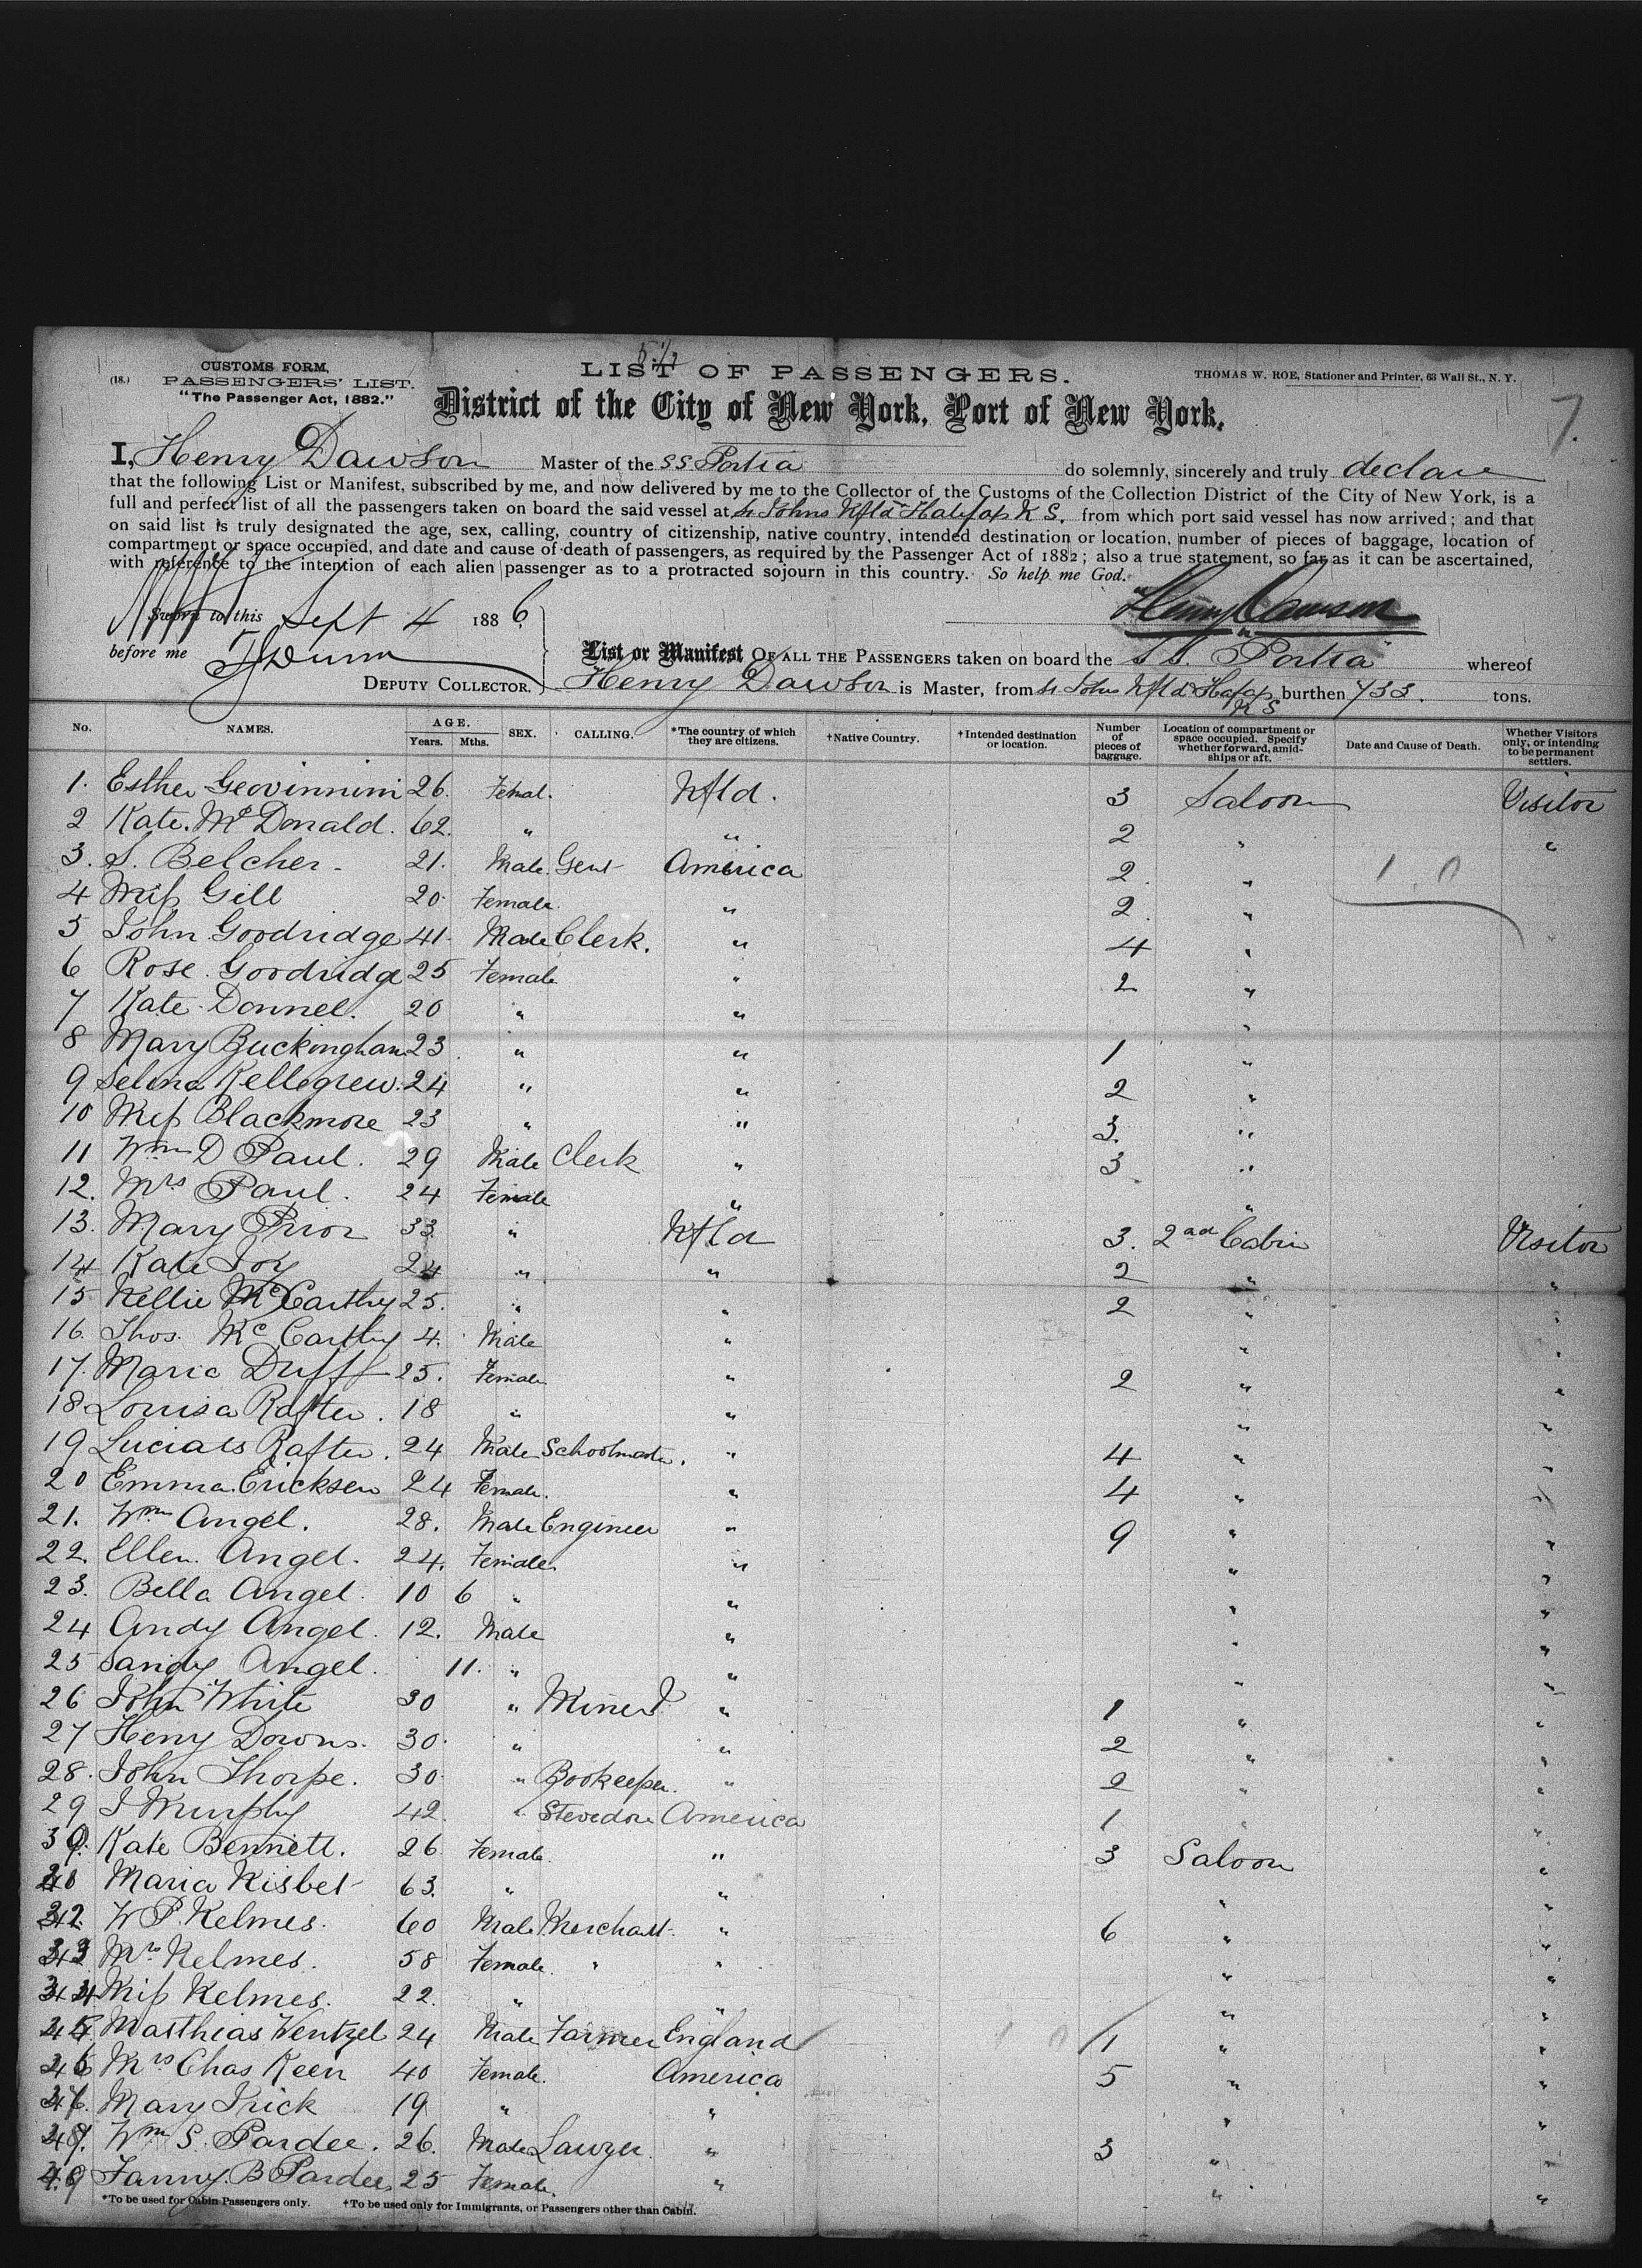 5 1/2
CUSTOMS FORM,
(18.) PASSENGERS' LIST.
"The Passenger Act, 1882."
LIST OF PASSENGERS.
THOMAS W. ROE, Stationer and Printer, 63 Wall St., N. Y.
District of the City of New York, Port of New York.
7.
I, Henry Dawson Master of the SS Portia do solemnly, sincerely and truly declare
that the following List or Manifest, subscribed by me, and now delivered by me to the Collector of the Customs of the Collection District of the City of New York, is a
full and perfect list of all the passengers taken on board the said vessel at St Johns Nfld Halifax N S. from which port said vessel has now arrived; and that
on said list is truly designated the age, sex, calling, country of citizenship, native country, intended destination or location, number of pieces of baggage, location of
compartment or space occupied, and date and cause of death of passengers, as required by the Passenger Act of 1882; also a true statement, so far as it can be ascertained,
with reference to the intention of each alien passenger as to a protracted sojourn in this country. So help me God.
Henry Dawson
Sworn to this Sept 4 1886
before me
DEPUTY COLLECTOR.
List or Manifest OF ALL THE PASSENGERS taken on board the S S. Portia whereof
Henry Dawson is Master, from St Johns Nfld Hafax N S burthen 733. tons.
No. NAMES. AGE. Years. Mths. SEX. CALLING. *The country of which they are citizens. †Native Country. †Intended destination or location. Number of pieces of baggage. Location of compartment or space occupied. Specify whether forward, amidships or aft. Date and Cause of Death. Whether Visitors only, or intending to be permanent settlers.
1. Esther Geovinnini 26. Femal. Nfld. 3 Saloon Visitor
2 Kate. McDonald. 62. " " 2 " "
3. S. Belcher 21. Male. Gent America 2. "
4 Miss Gill 20. Female. " 2. "
5 John Goodridge 41. Male Clerk. " 4 "
6 Rose. Goodridge 25 Female " 2 "
7 Kate Donnel. 20 " " "
8 Mary Buckingham 23. " " 1 "
9 Selina Kellegrew. 24 " " 2 "
10 Miss Blackmore 23 " " 3. "
11 Wm D Paul. 29 Male Clerk " 3 "
12. Mrs Paul. 24 Female " "
13. Mary Prior 33. " Nfld 3. 2nd Cabin Visitor
14 Kate Joy 24 " " 2 " "
15 Nellie McCarthy 25. " " 2 " "
16. Thos. McCarthy 4. Male " " "
17. Maria Duff 25. Female " 2 " "
18 Louisa Rafter. 18 " " " "
19 Rafter. 24 Male Schoolmaster. " 4 " "
20 Emma. Ericksen 24 Female. " 4 " "
21. Wm Angel. 28. Male Engineer " 9 " "
22. Ellen. Angel. 24. Female. " " "
23. Bella Angel. 10 6 " " " "
24 Andy Angel. 12. Male " " "
25 Sandy Angel. 11. " " " "
26 John White 30 " Miner " 1 " "
27 Henry Downs. 30. " " 2 " "
28. John Thorpe. 30. " Bookeeper. " 2 " "
29 J Murphy 42. " Stevedore America 1 " "
30. Kate Bennett. 26 Female. " 3 Saloon "
31 Maria Nisbet 63. " " " "
32. W P. Nelmes. 60 Male Merchant. " 6 " "
33 Mrs Nelmes. 58 Female. " " " "
34 Miss Nelmes. 22. " " " "
35 Matthias Wentzel 24 Male Farmer England 1 " "
36 Mrs Chas Keen 40 Female. America 5 " "
37. Mary Frick 19 " " " "
38. Wm S. Pardee. 26. Male Lawyer " 3 " "
39 Fanny. B Pardee 25 Female. " " "
*To be used for Cabin Passengers only. †To be used only for Immigrants, or Passengers other than Cabin.